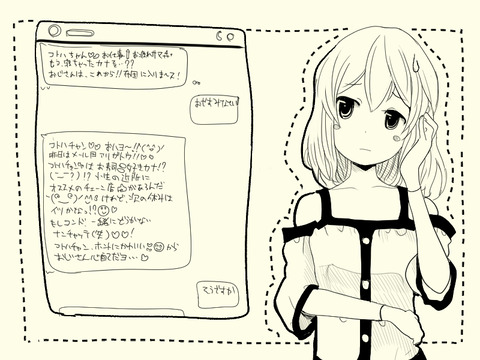 コトハちゃん♡♡ お仕事!! お疲れサマ。
もう、寝ちゃったカナ??
おじさんは、これから!!お布団に入りまーす!
おやすみなさい
コトハチャン♡♡ オハヨ〜!!(^o^)/
昨日はメール❗アリガトウ!!♡♡
コトハチャンは お寿司好きカナ!?
(ー_ー?)!? 小生の近所に
オススメのチェーン店 があるんだ
けれど、次の休みは
イツかなっ!?😊♡
もしコンド 一緒にどうかな
ナンチャッテ(笑)♡♡!
コトハチャン、ホントにかわいい から
おじさん心配だヨ…♡
そうですか